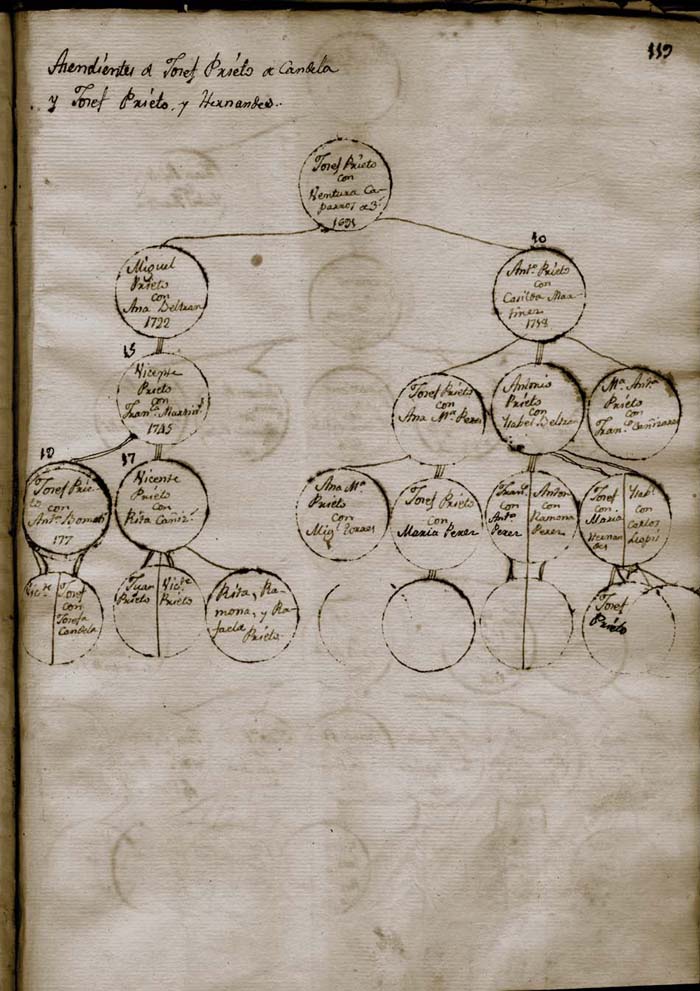 119
Asendientes de Josef Prieto de Candela
y Josef Prieto, y Hernandes.
Josef Prieto
con
Ventura Ca-
parros
1691
Miguel
Prieto
con
Ana Beltran
1722
10
Antº Prieto
con
Casilda Mar-
tinez
1758
15
Vicente
Prieto
con
Franª Martin
1745
Josef Prieto
con
Ana Mª Perez
Antonio
Prieto
con
Ysabel Beltran
Mª Antª
Prieto
con
Franº Cañizares
18
Josef Prie-
to
con
Antª
177
17
Vicente
Prieto
con
Rita Cañiz.
Ana Mª
Prieto
con
Migl Torres
Josef Prieto
con
Maria Perez
Franª
con
Antº
Perez
Anton
con
Ramona
Perez
Josef
con
Maria
Hernan
des
Ysabl
con
Carlos
Victe
Josef
con
Josefa
Candela
Juan
Prieto
Victe
Prieto
Rita, Ra-
mona, y Ra-
faela
Prieto
Josef
Prieto